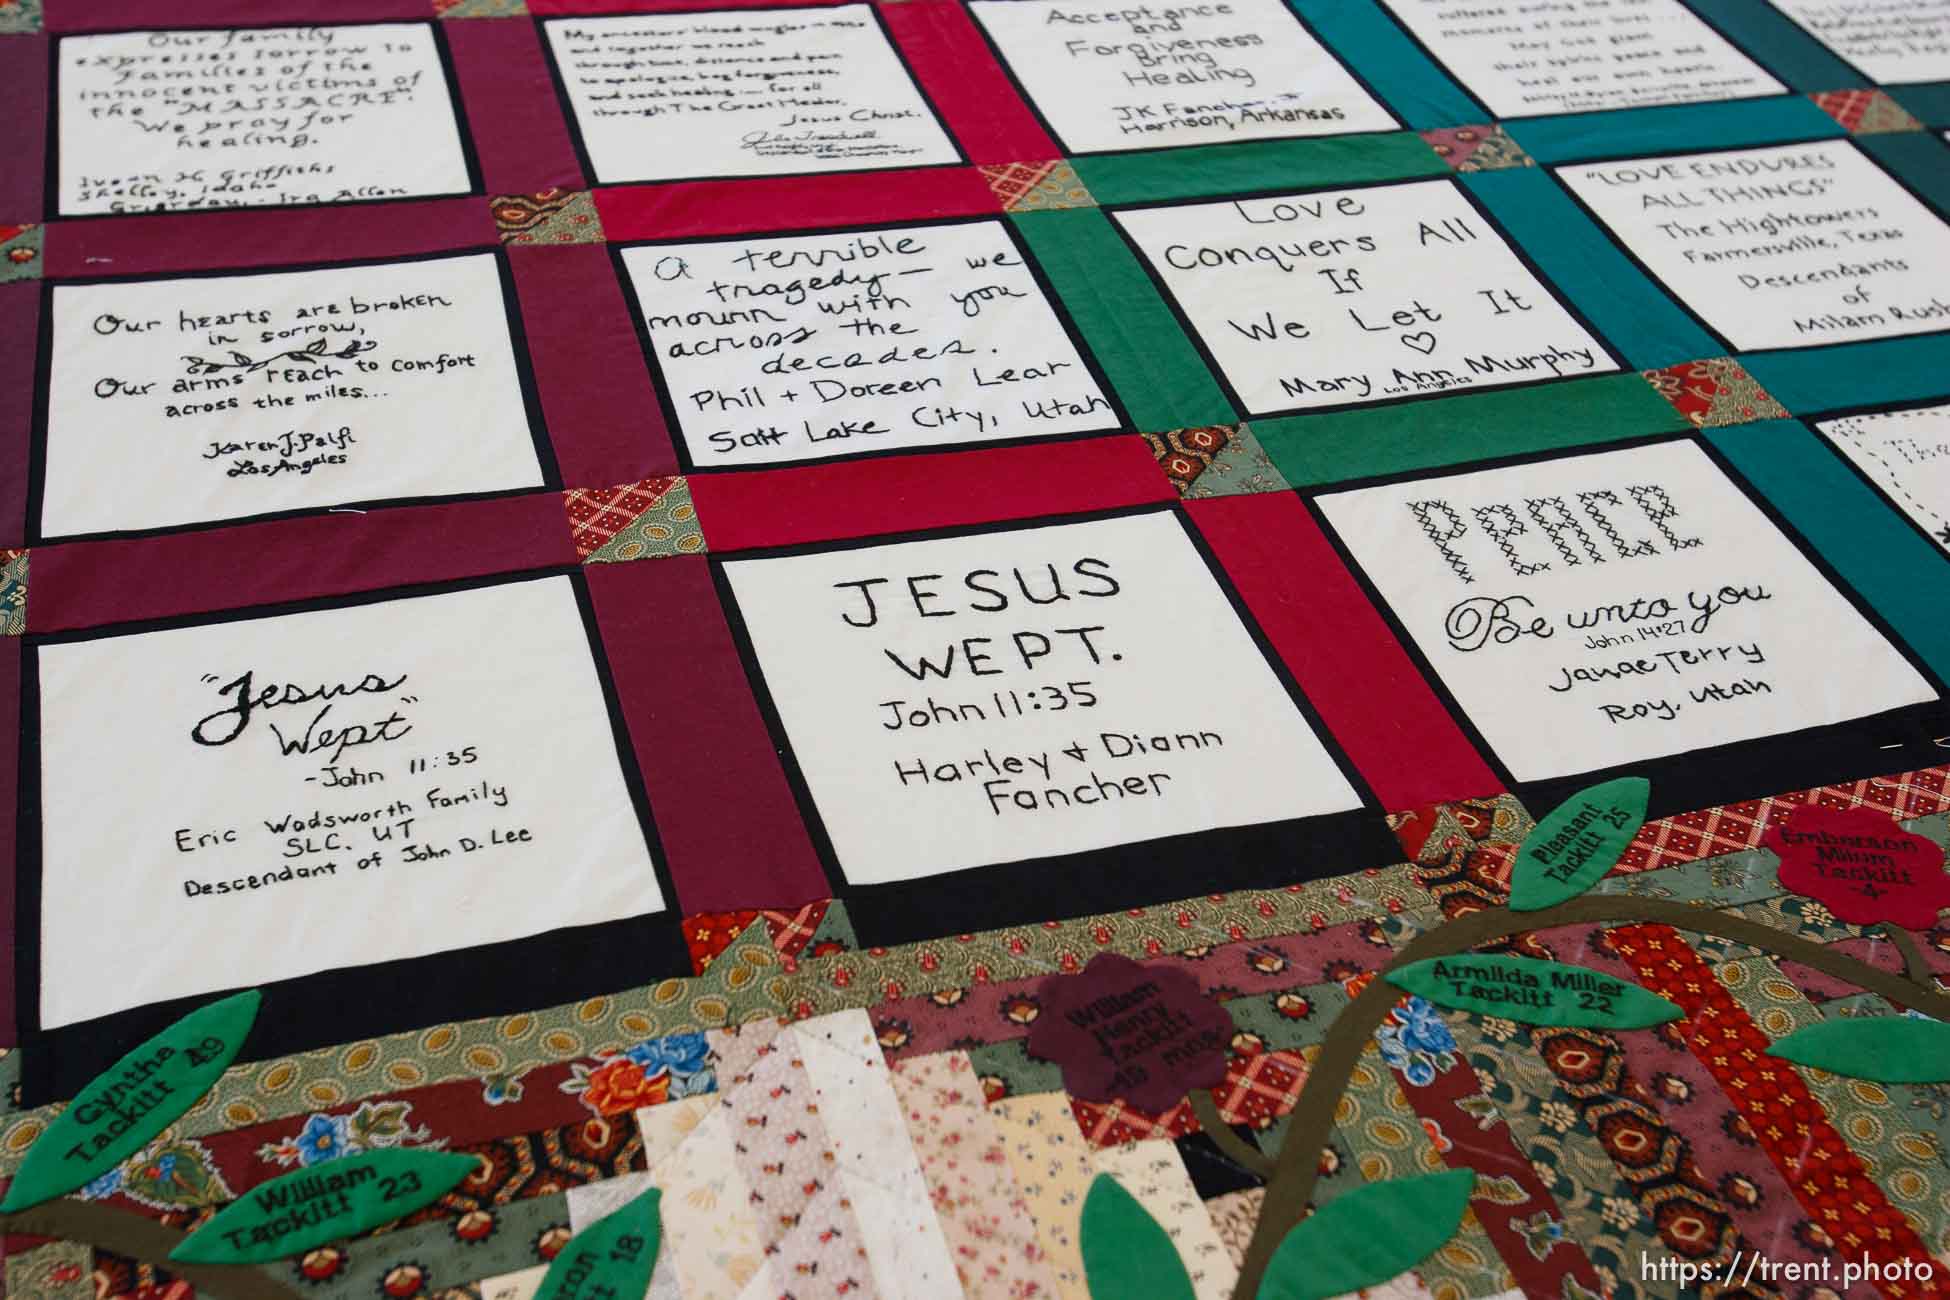 Our family
expresses sorrow to
families of the
innocent victims of
the "MASSACRE".
We pray for
healing.
Shelley, Idaho
Ira Allen
My ancestors' blood
and together we reach
through time, distance and pain
to apologize, beg forgiveness,
and seek healing.... for all
through The Great Healer,
Jesus Christ.
Acceptance
and
Forgiveness
Bring
Healing
JK Fancher
Harrison, Arkansas
suffered during the
moments of their lives...
May God grant
their spirits peace and
heal our own hearts.
Our hearts are broken
in sorrow,
Our arms reach to comfort
across the miles...
Karen J. Palfi
Los Angeles
A terrible
tragedy— we
mourn with you
across the
decades.
Phil + Doreen Lear
Salt Lake City, Utah
Love
Conquers All
If
We Let It
Mary Ann Murphy
Los Angeles
"LOVE ENDURES
ALL THINGS"
The Hightowers
Farmersville, Texas
Descendants
of
Milam Rush
"Jesus
Wept"
-John 11:35
Eric Wadsworth Family
SLC. UT
Descendant of John D. Lee
JESUS
WEPT.
John 11:35
Harley + Diann
Fancher
PEACE
Be unto you
John 14:27
Janae Terry
Roy, Utah
Pleasant
Tackitt 25
Emberson
Milum
Tackitt
-4-
Armilda Miller
Tackitt 22
William
Henry
Tackitt
-19 mos-
Cyntha
Tackitt 49
William
Tackitt 23
18
https://trent.photo